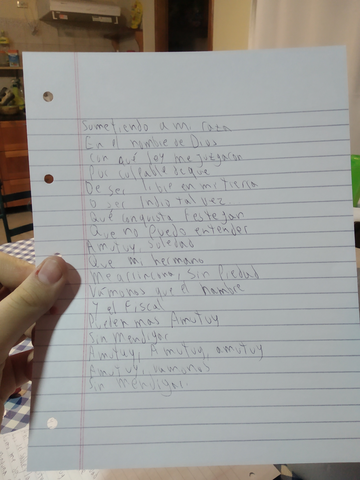 Sometiendo a mi raza
En el nombre de Dios
Con qué ley me juzgaron
Por culpable de que
De ser libre en mi tierra
O ser Indio tal vez
Qué conquista festejan
Que no puedo entender
Amutuy, Soledad
Que mi hermano
Me arrincona, sin Piedad
Vámonos que el hambre
Y el Fiscal
Duelen mas Amutuy
Sin Mendigar
Amutuy, Amutuy, amutuy
Amutuy, vamonos
Sin Mendigar.